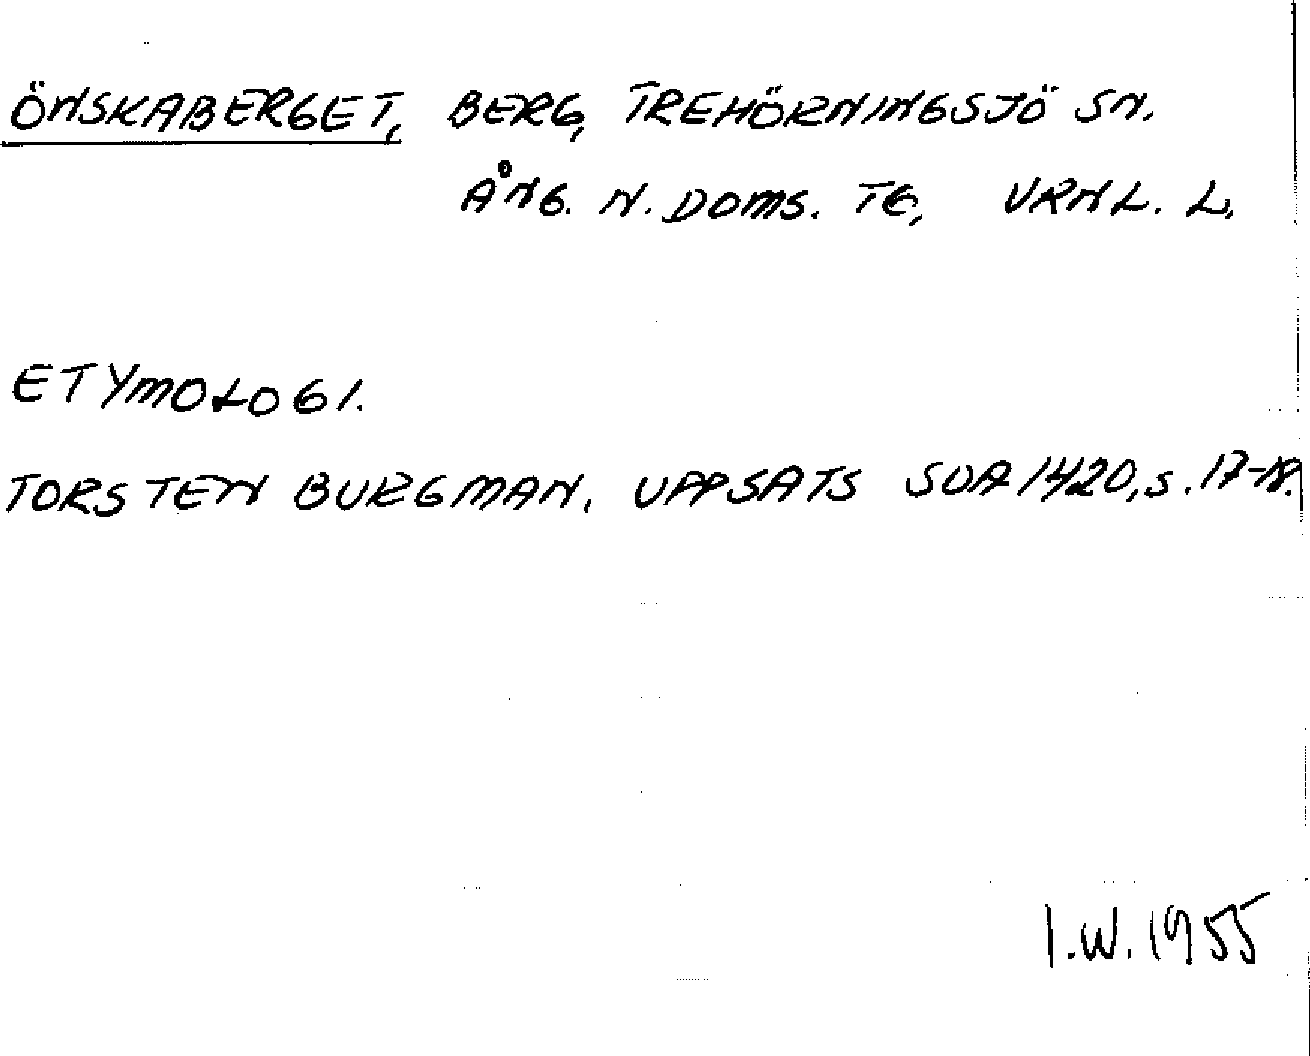 ÖNSKABERGET, BERG, TREHÖRNINGSJÖ SN.
ÅNG. N. DOMS. TG, VRNL. L.
ETYMOLOGI.
TORSTEN BURGMAN, UPPSATS SOA 1420, S. 17-18.
I.W. 1955